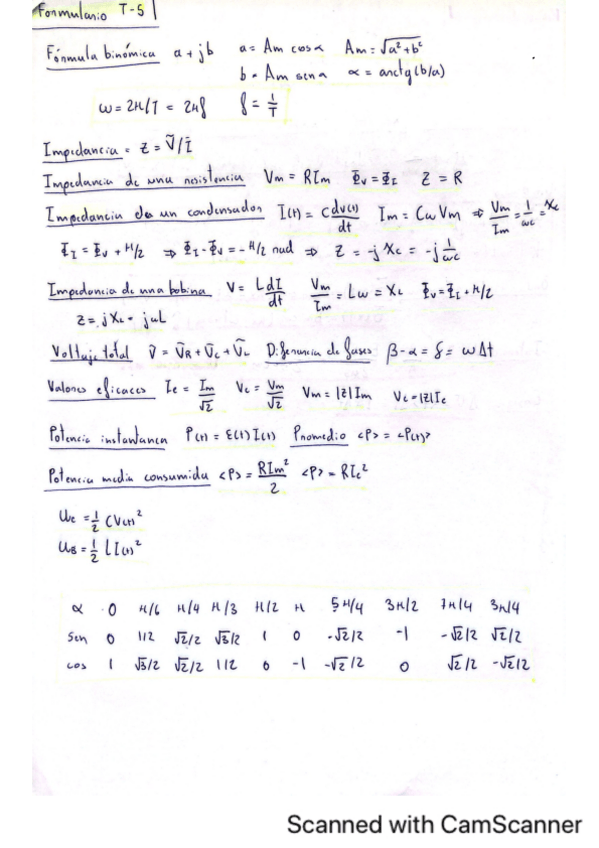 Formulario T-5
Fórmula binómica a + jb a = Am cosα Am = √a²+b²
b = Am senα α = arctg(b/a)
ω = 2π/T = 2πf f = 1/T
Impedancia = Z = Ṽ/Ĩ
Impedancia de una resistencia Vm = RIm Φv = ΦI Z = R
Impedancia de un condensador I(t) = C dv(t)/dt Im = CωVm ⇒ Vm/Im = 1/ωC = Xc
ΦI = Φv + π/2 ⇒ ΦI - Φv = -π/2 rad ⇒ Z = -jXc = -j 1/ωC
Impedancia de una bobina V = L dI/dt Vm/Im = Lω = XL Φv = ΦI + π/2
Z = jXL = jωL
Voltaje total Ṽ = ṼR + ṼC + ṼL Diferencia de fases β - α = δ = ωΔt
Valores eficaces Ie = Im/√2 Ve = Vm/√2 Vm = |Z|Im Ve = |Z|Ie
Potencia instantanea P(t) = ε(t) I(t) Promedio <P> = <P(t)>
Potencia media consumida <P> = RIm²/2 <P> = RIe²
UE = 1/2 CV(t)²
UB = 1/2 LI(t)²
α 0 π/6 π/4 π/3 π/2 π 5π/4 3π/2 7π/4 3π/4
Sen 0 1/2 √2/2 √3/2 1 0 -√2/2 -1 -√2/2 √2/2
cos 1 √3/2 √2/2 1/2 0 -1 -√2/2 0 √2/2 -√2/2
Scanned with CamScanner